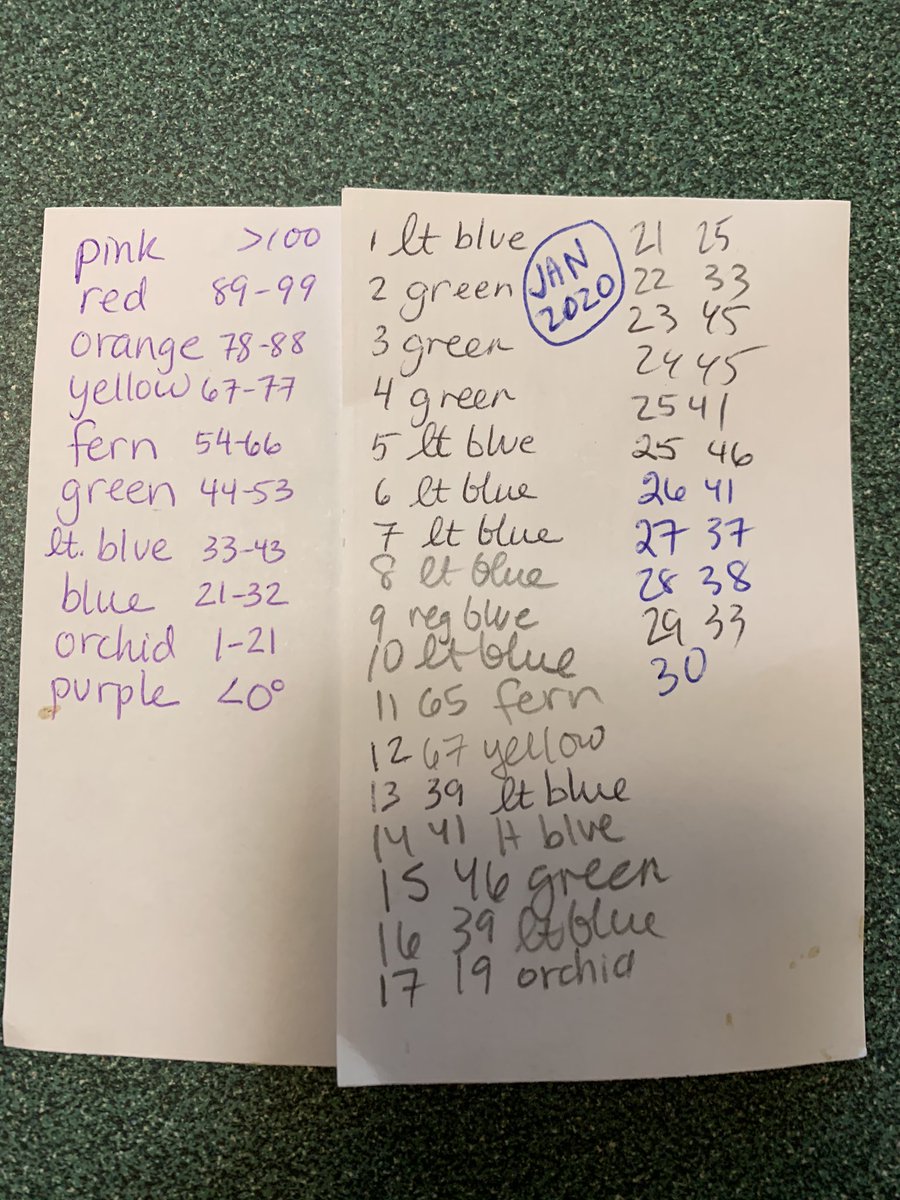 pink >100
red 89-99
orange 78-88
yellow 67-77
fern 54-66
green 44-53
lt. blue 33-43
blue 21-32
orchid 1-21
purple <0°
1 lt blue
2 green
3 green
4 green
5 lt blue
6 lt blue
7 lt blue
8 lt blue
9 reg blue
10 lt blue
11 65 fern
12 67 yellow
13 39 lt blue
14 41 lt blue
15 46 green
16 39 lt blue
17 19 orchid
JAN
2020
21 25
22 33
23 45
24 45
25 41
25 46
26 41
27 37
28 38
29 33
30